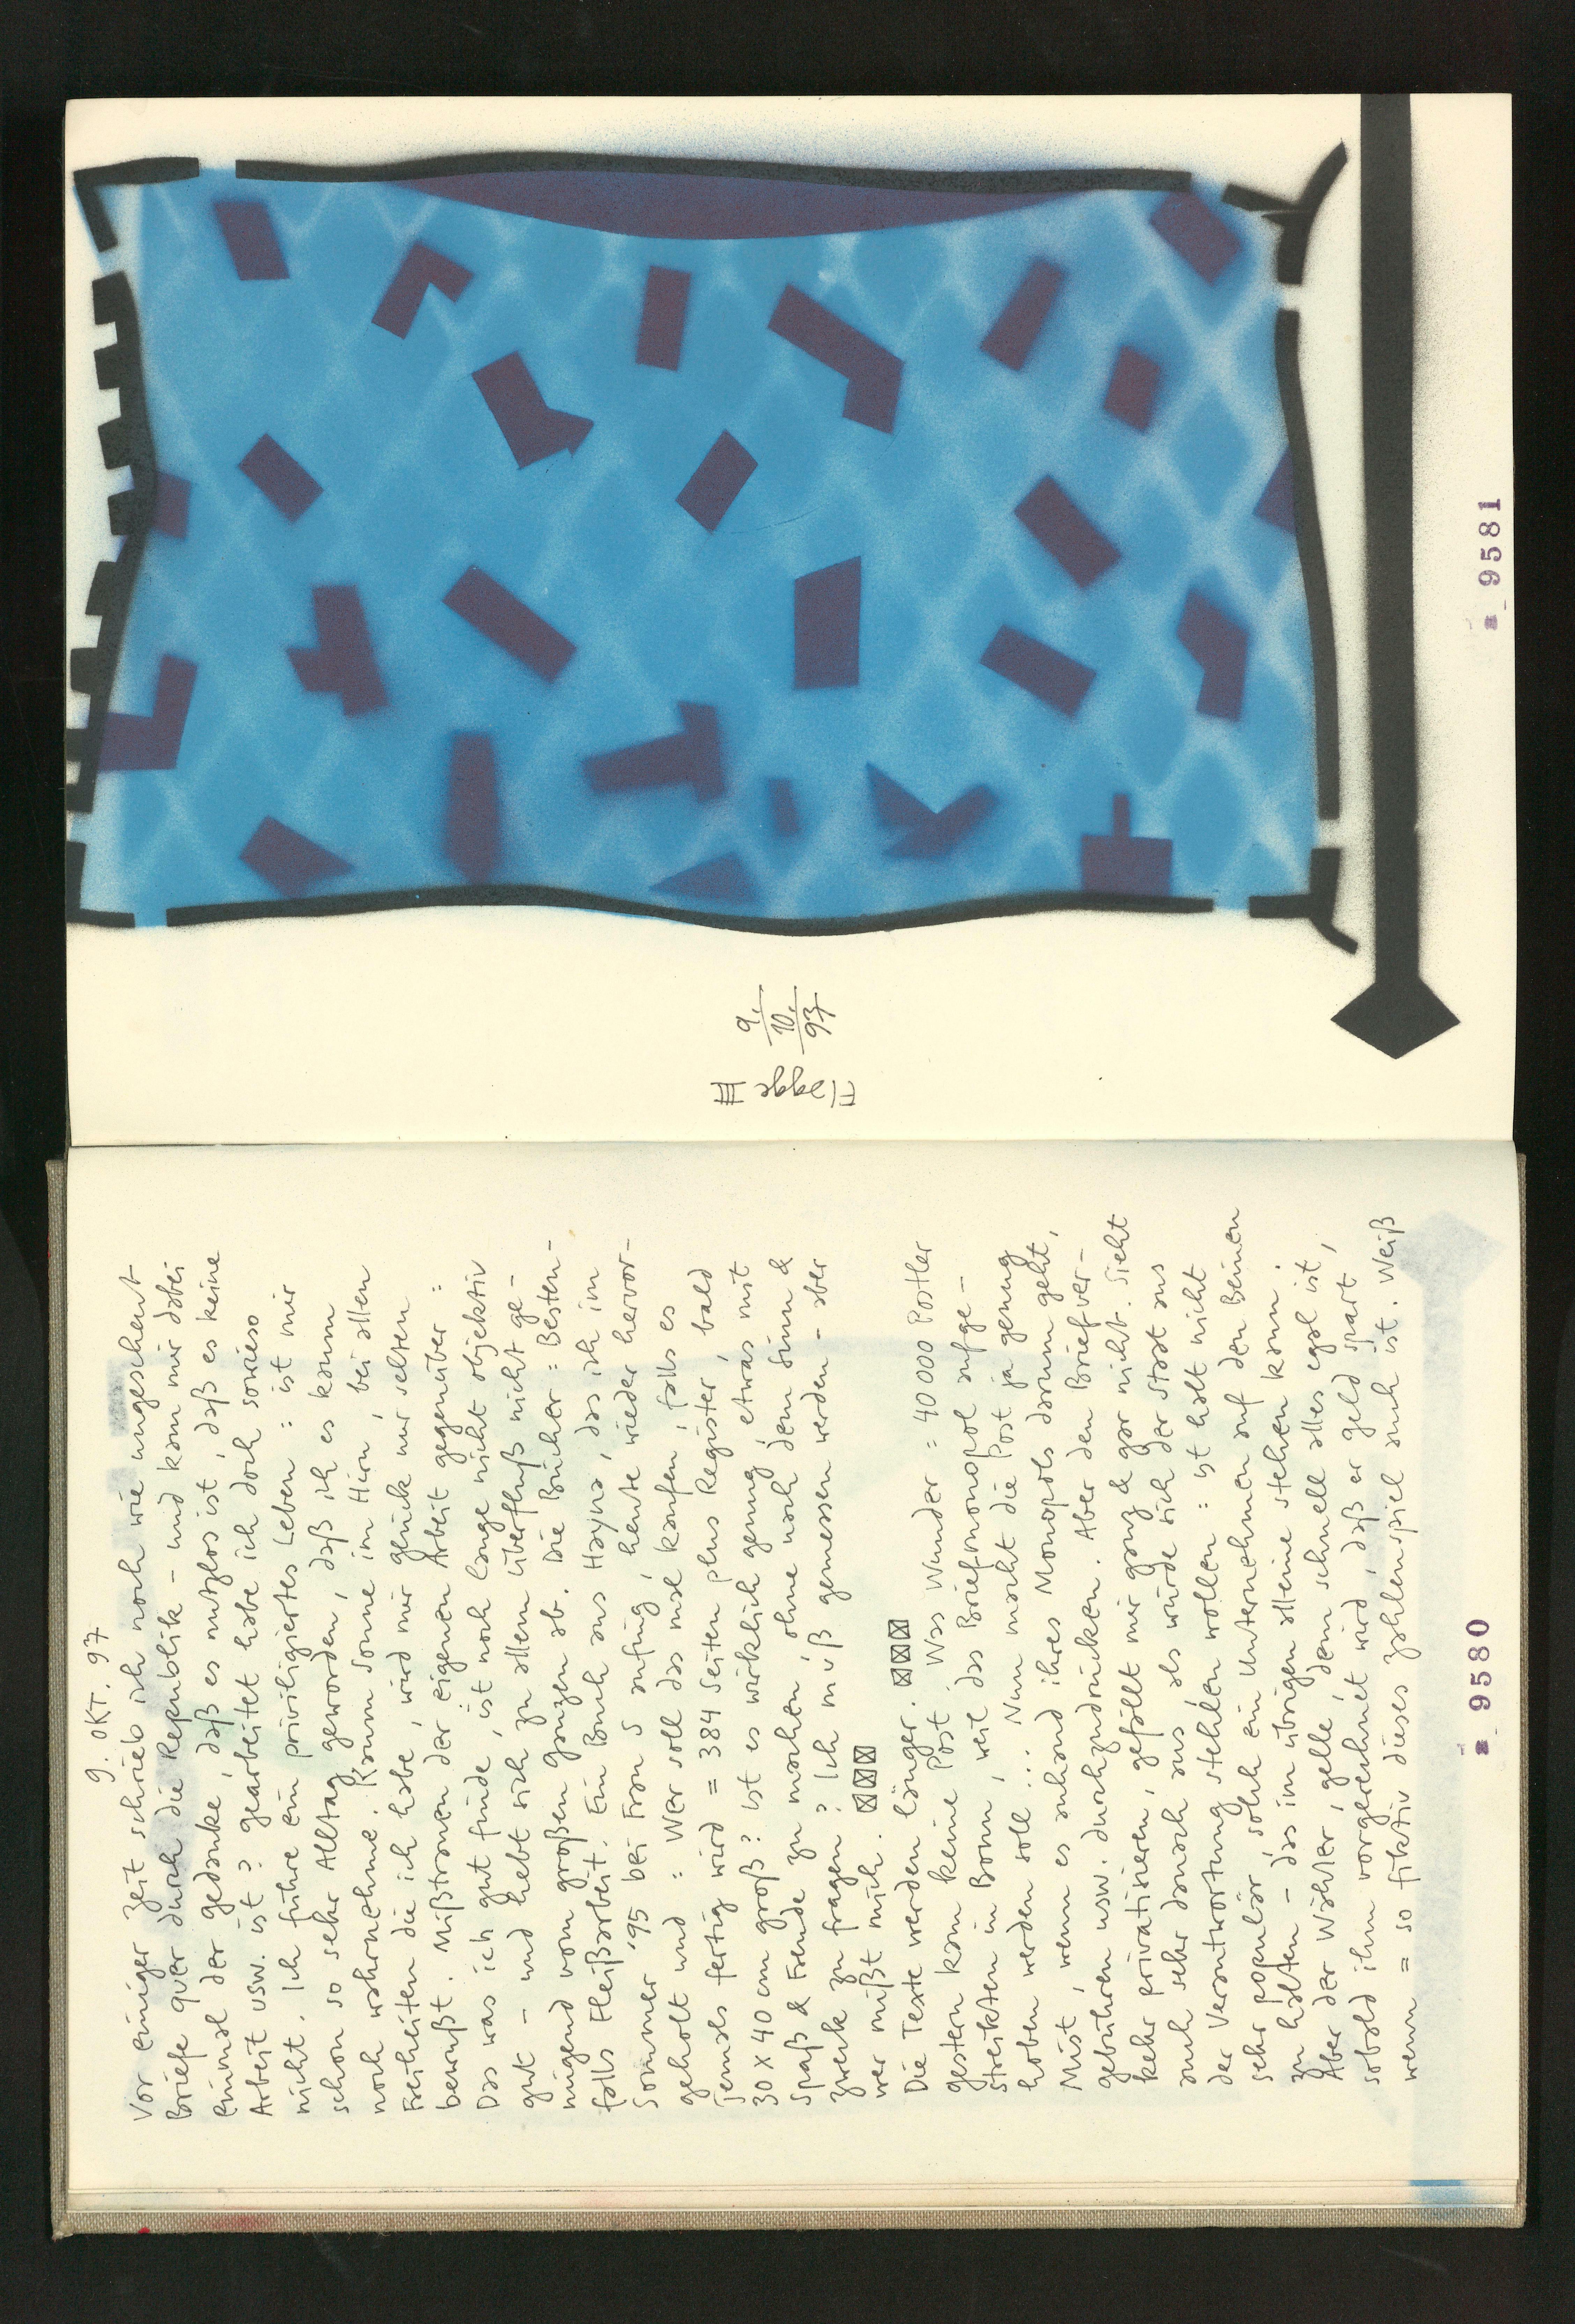 9. OKT. 97
Vor einiger Zeit schrieb ich noch wie ungescheut
Briefe quer durch die Republik – und kam mir dabei
einmal der Gedanke, daß es nutzlos ist, daß es keine
Arbeit usw. ist? Gearbeitet habe ich doch sowieso
nicht. Ich führe ein priviligiertes Leben : ist mir
schon so sehr Alltag geworden, daß ich es kaum
noch wahrnehme. Kaum Sonne im Hirn, bei allen
Freiheiten die ich habe, wird mir Glück nur selten
bewußt. Mißtrauen der eigenen Arbeit gegenüber :
Das was ich gut finde, ist noch lange nicht objektiv
gut – und hebt sich zu allem Überfluß nicht ge-
nügend vom großen Ganzen ab. Die Bücher : Besten-
falls Fleißarbeit. Ein Buch aus Hayna, das ich im
Sommer '95 bei Frau S anfing, heute wieder hervor-
geholt und : Wer soll das mal kaufen, falls es
jemals fertig wird = 384 Seiten plus Register, bald
30 x 40 cm groß? Ist es wirklich genug, etwas mit
Spaß & Freude zu machen, ohne nach dem Sinn &
Zweck zu fragen? Ich muß gemessen werden – aber
wer mißt mich.
Die Texte werden länger. Was Wunder = 40 000 Postler
gestern kam keine Post. Was Wunder = 40 000 Postler
streikten in Bonn, weil das Briefmonopol aufge-
hoben werden soll... Nun macht die Post ja genug
Mist, wenn es anhand ihres Monopols darum geht,
Gebühren usw. durchzudrücken. Aber den Briefver-
kehr privatisieren, gefällt mir ganz & gar nicht. Sieht
auch sehr danach aus, als würde sich der Staat aus
der Verantwortung stehlen wollen : ist halt nicht
sehr populär, solch ein Unternehmen auf den Beinen
zu halten – das im übrigen alleine stehen kann.
Aber der Wähler, gelle, dem schnell alles egal ist,
sobald ihm vorgerechnet wird, daß er Geld spart,
wenn = so fiktiv dieses Zahlenspiel auch ist. Weiß
9580
Flagge III
9.
10.
97
9581